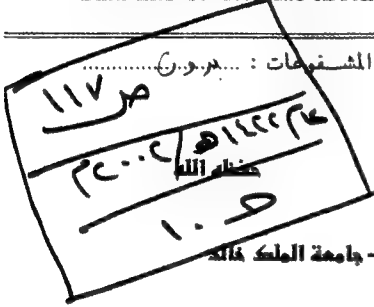 المشـفوعات : ...بدون...
ص ١١٧
عام ١٤٢٢هـ / ٢٠٠٢م
حفظه الله
١٠
- جامعة الملك خالد